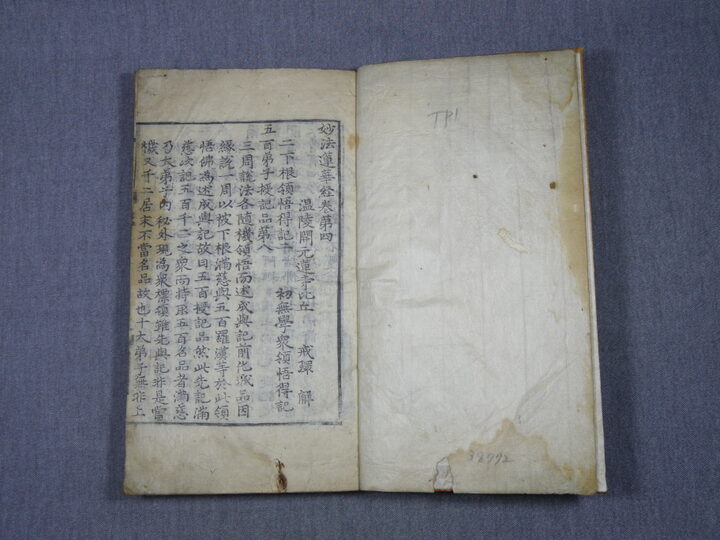 妙法蓮華経巻第四
溫陵開元蓮寺比丘 戒環 解
二下根領悟得記二 初無學衆領悟得記
五百弟子授記品第八
三周說法各隨機領悟而述成與記前化城品因
緣說一周以被下根滿慈與五百羅漢等於此領
悟佛為述成與記故曰五百授記品然此先記滿
慈次記五百千二之衆而特取五百名品者滿慈
乃大弟子內秘外現為衆標領難先與記非是當
機又千二居末不當名品故也十大弟子無非上
TP1
38992